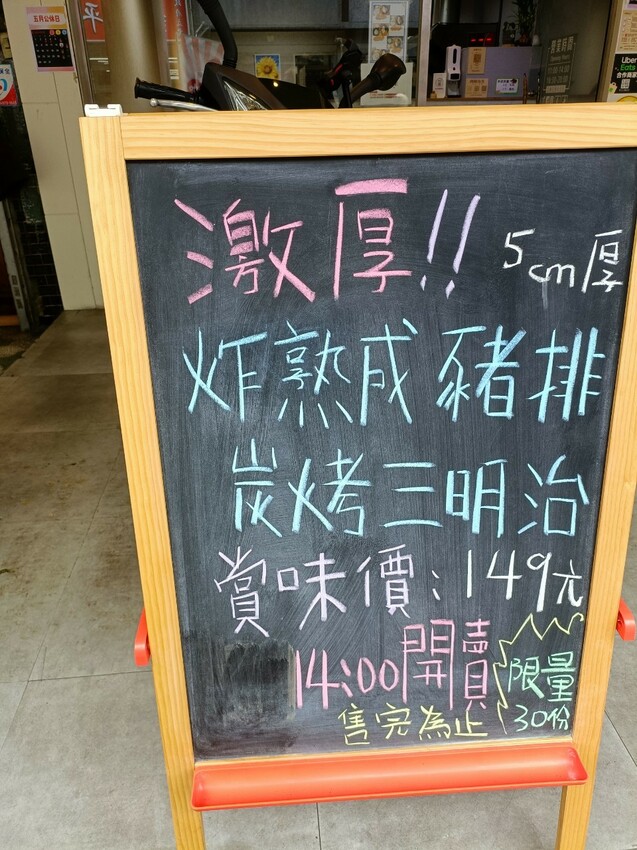 五月公休日
平
Uber
Eats
激厚!! 5cm厚
炸熟成豬排
炭烤三明治
賞味價:149元
14:00開賣
限量
30份
售完為止